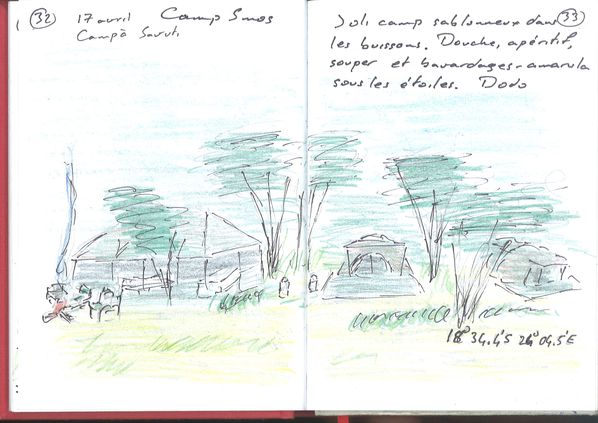 32
17 avril Camp Smos
Camp à Savuti
33
Joli camp sablonneux dans
les buissons. Douche, apéritif,
souper et bavardages-amarula
sous les étoiles. Dodo
18° 34.4'S 24° 04.5'E